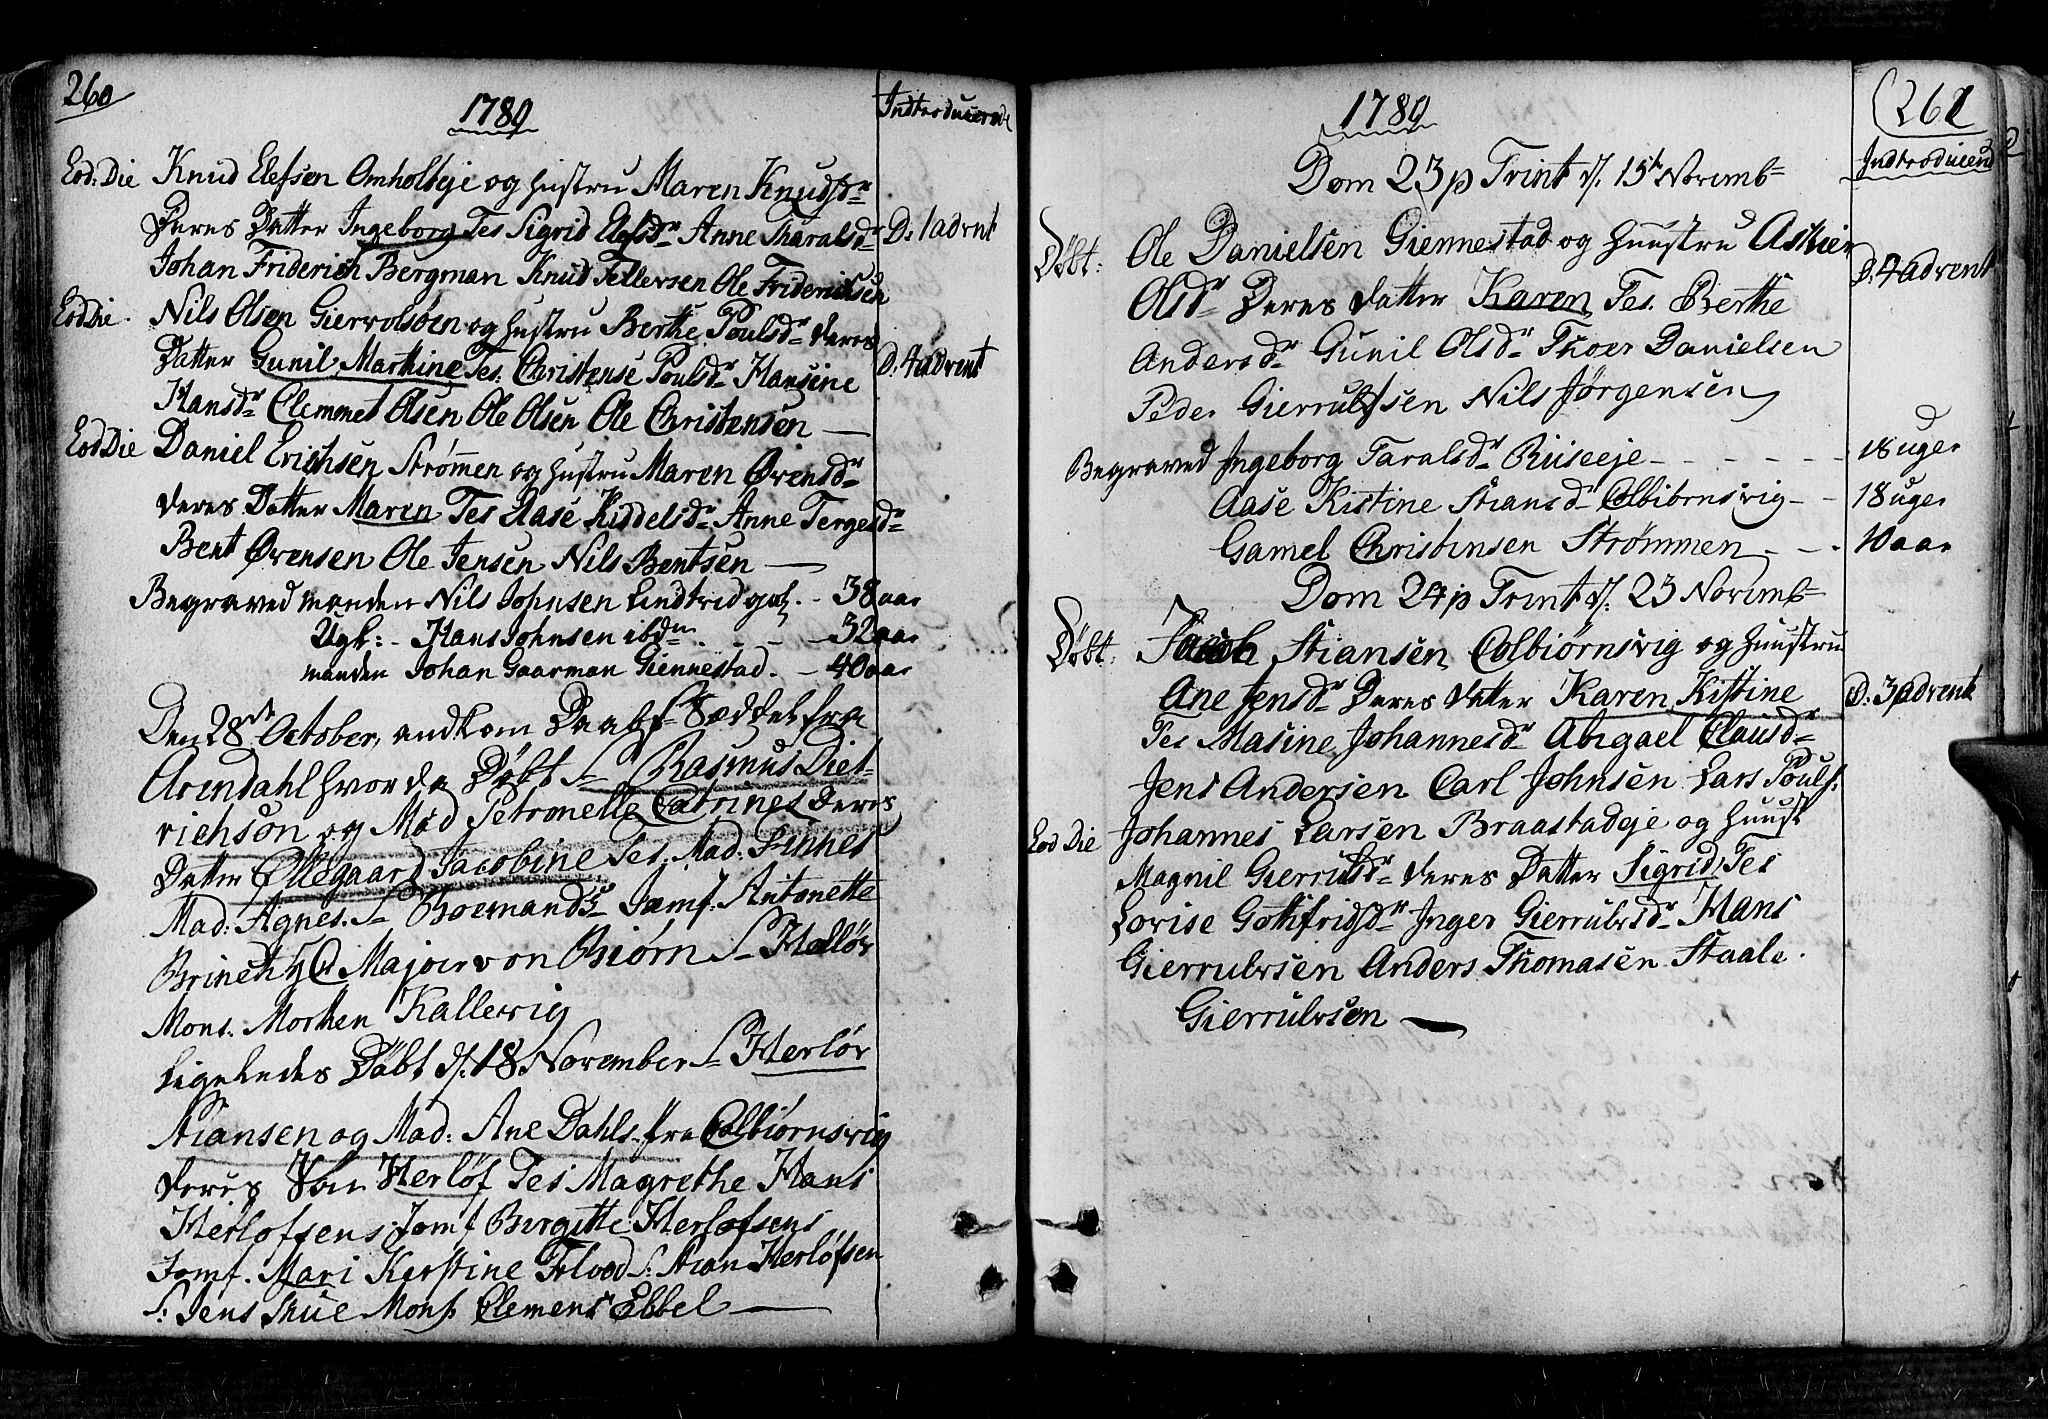 260
1789
Indtroducerede
Eod: Die Knud Elefsen Omholteje og Hustru Maren Knudsdr
Deres Datter Ingeborg Tes Sigrid Elefsdr Anne Tharalsdr D. 1 advent
Johan Friderich Bergman Knud Tellefsen Ole Friderichsen
Eod Die Nils Olsen Giervolsøen og Hustru Berthe Poulsdr deres
Datter Gunil Marthine Tes: Christense Poulsdr Hansine D. 4 advent
Hansdr Clemmet Olsen Ole Olsen Ole Christensen
Eod Die Daniel Erichsen Strømen og Hustru Maren Ørensdr
deres Datter Maren Tes Aase Kiddelsdr Anne Tergesdr
Bent Ørensen Ole Jensen Nils Bentsen
Begraved manden Nils Johnsen - 38 aar
Ugk: Hans Johnsen ibdm - 32 aar
manden Johan Gaarman Giennestad. - 40 aar
Den 28de October, andkom Daabs Seddel fra
Arendahl hvor da Døbt S Rasmus Diet-
richson og Mad Petronelle Catrines Deres
Datter Øllegaard Jacobine Tes. Mad: Finnes
Mad: Agnes. S Jomf: Antonette
Major von Biørn S
Mons. Morten Kallevig
Ligeledes Døbt d. 18 November S Herløv
Stiansen og Mad: Ane Dahls fra Colbiørnsvig
deres Søn Herløf Tes Magrethe Hans
Herlofsens Jomf Birgitte Herlofsens
Jomf. Mari Kerstine S: Stian Herløfsen
S: Jens Thue Mons Clemens Ebbel
1789
261
Indtroducered
Dom 23 p Trint d. 15 Novemb
Døbt: Ole Danielsen Giennestad og Huustru
Olsdr Deres datter Karen Tes. Berthe D. 4 advent
Andersdr Gunil Olsdr Thoer Danielsen
Peder Gierrulfsen Nils Jørgensen
Begraved Ingeborg Taralsdr Riiseeje - 18 uger
Aase Kistine Stiansd Colbiørnsvig - 18 uger
Gamel Christensen Strømmen - 10 aar
Dom 24 p Trint d. 23 Novemb
Døbt. Jacob Stiansen Colbiørnsvig og Huustru
Ane Jensdr Deres datter Karen Kistine D. 3 advent
Tes Masine Johannesdr Abigael Clausdr
Jens Andersen Carl Johnsen Lars Pouls.
Eod Die Johannes Larsen Braastadeje og Huust
Magnil Gierrulsdr deres Datter Sigrid Tes
Lovise Gottfridsdr Inger Gierrulvsdr Hans
Gierrulvsen Anders Thomasen Staale.
Gierrulvsen